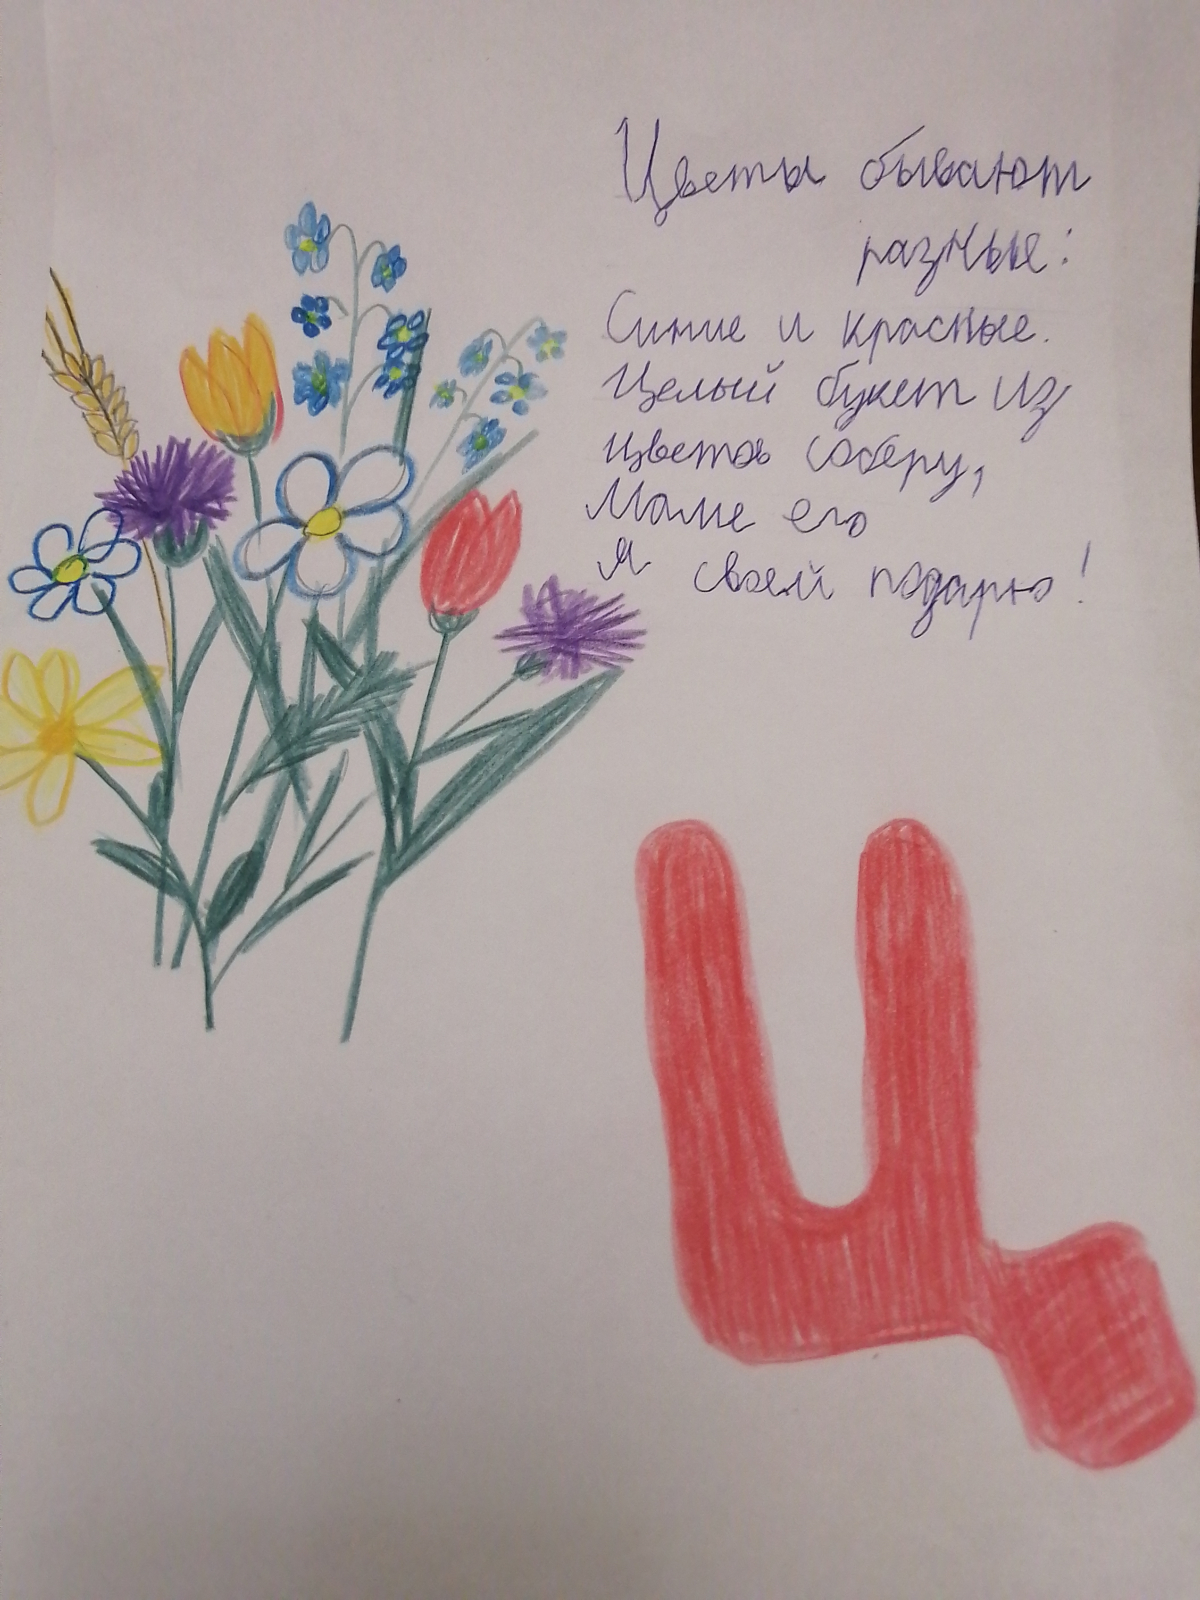 Цветы бывают
разные:
Синие и красные.
Целый букет из
цветов соберу,
Маме его
я своей подарю!
Ц